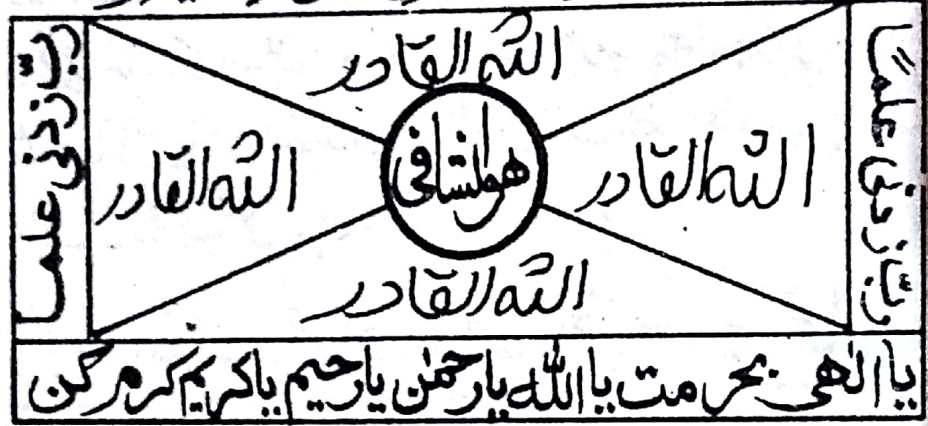 رب زدنی علما
اللہ القادر
اللہ القادر
ھوالشافی
اللہ القادر
اللہ القادر
رب زدنی علما
یا الٰھی بحرمت یا اللہ یا رحمٰن یا رحیم یا کریم کرم کن